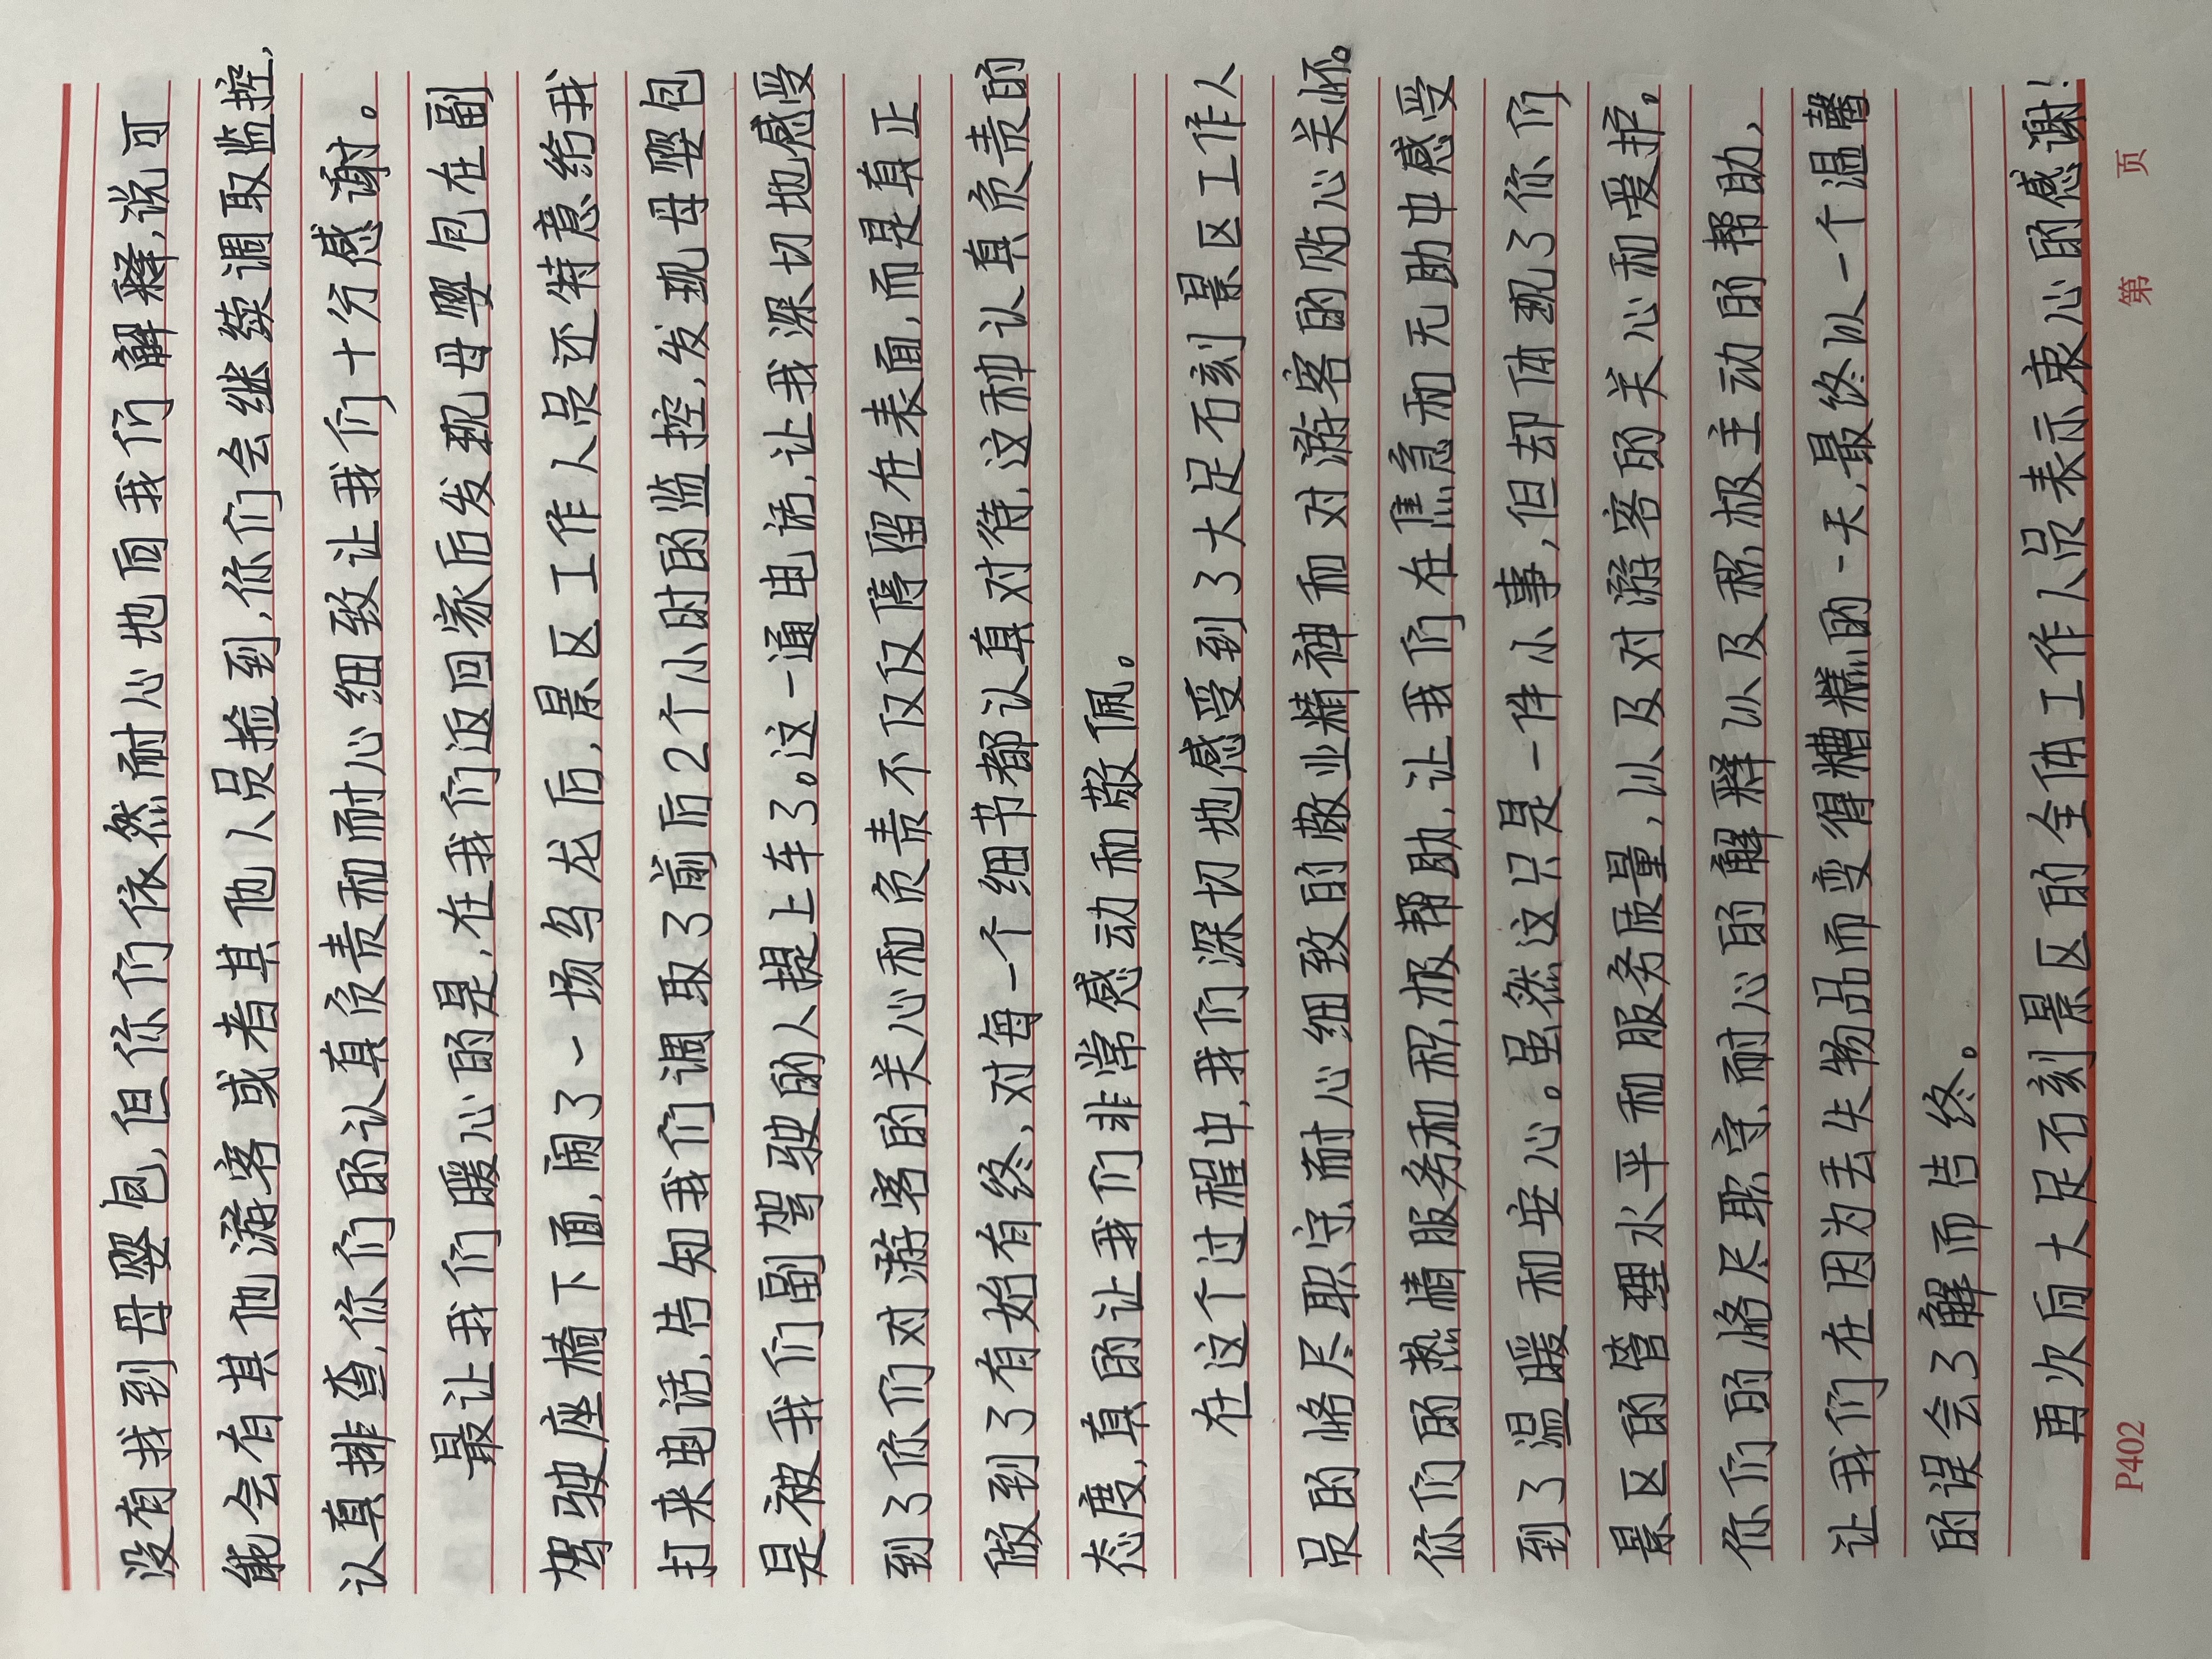 没有找到母婴包,但你们依然耐心地向我们解释,说可
能会有其他游客或者其他人员捡到,你们会继续调取监控,
认真排查,你们的认真负责和耐心细致让我们十分感谢。
最让我们暖心的是,在我们返回家后发现母婴包在副
驾驶座椅下面,闹了一场乌龙后,景区工作人员还特意给我
打来电话,告知我们调取了前后2个小时的监控,发现母婴包
是被我们副驾驶的人提上车了。这一通电话,让我深切地感受
到了你们对游客的关心和负责不仅仅停留在表面,而是真正
做到了有始有终,对每一个细节都认真对待,这种认真负责的
态度,真的让我们非常感动和敬佩。
在这个过程中,我们深切地感受到了大足石刻景区工作人
员的恪尽职守、耐心细致的敬业精神和对游客的贴心关怀。
你们的热情服务和积极帮助,让我们在焦急和无助中感受
到了温暖和安心。虽然这只是一件小事,但却体现了你们
景区的管理水平和服务质量,以及对游客的关心和爱护。
你们的恪尽职守、耐心的解释以及积极主动的帮助,
让我们在因为丢失物品而变得糟糕的一天,最终以一个温馨
的误会了解而告终。
再次向大足石刻景区的全体工作人员表示衷心的感谢!
P402 第 页